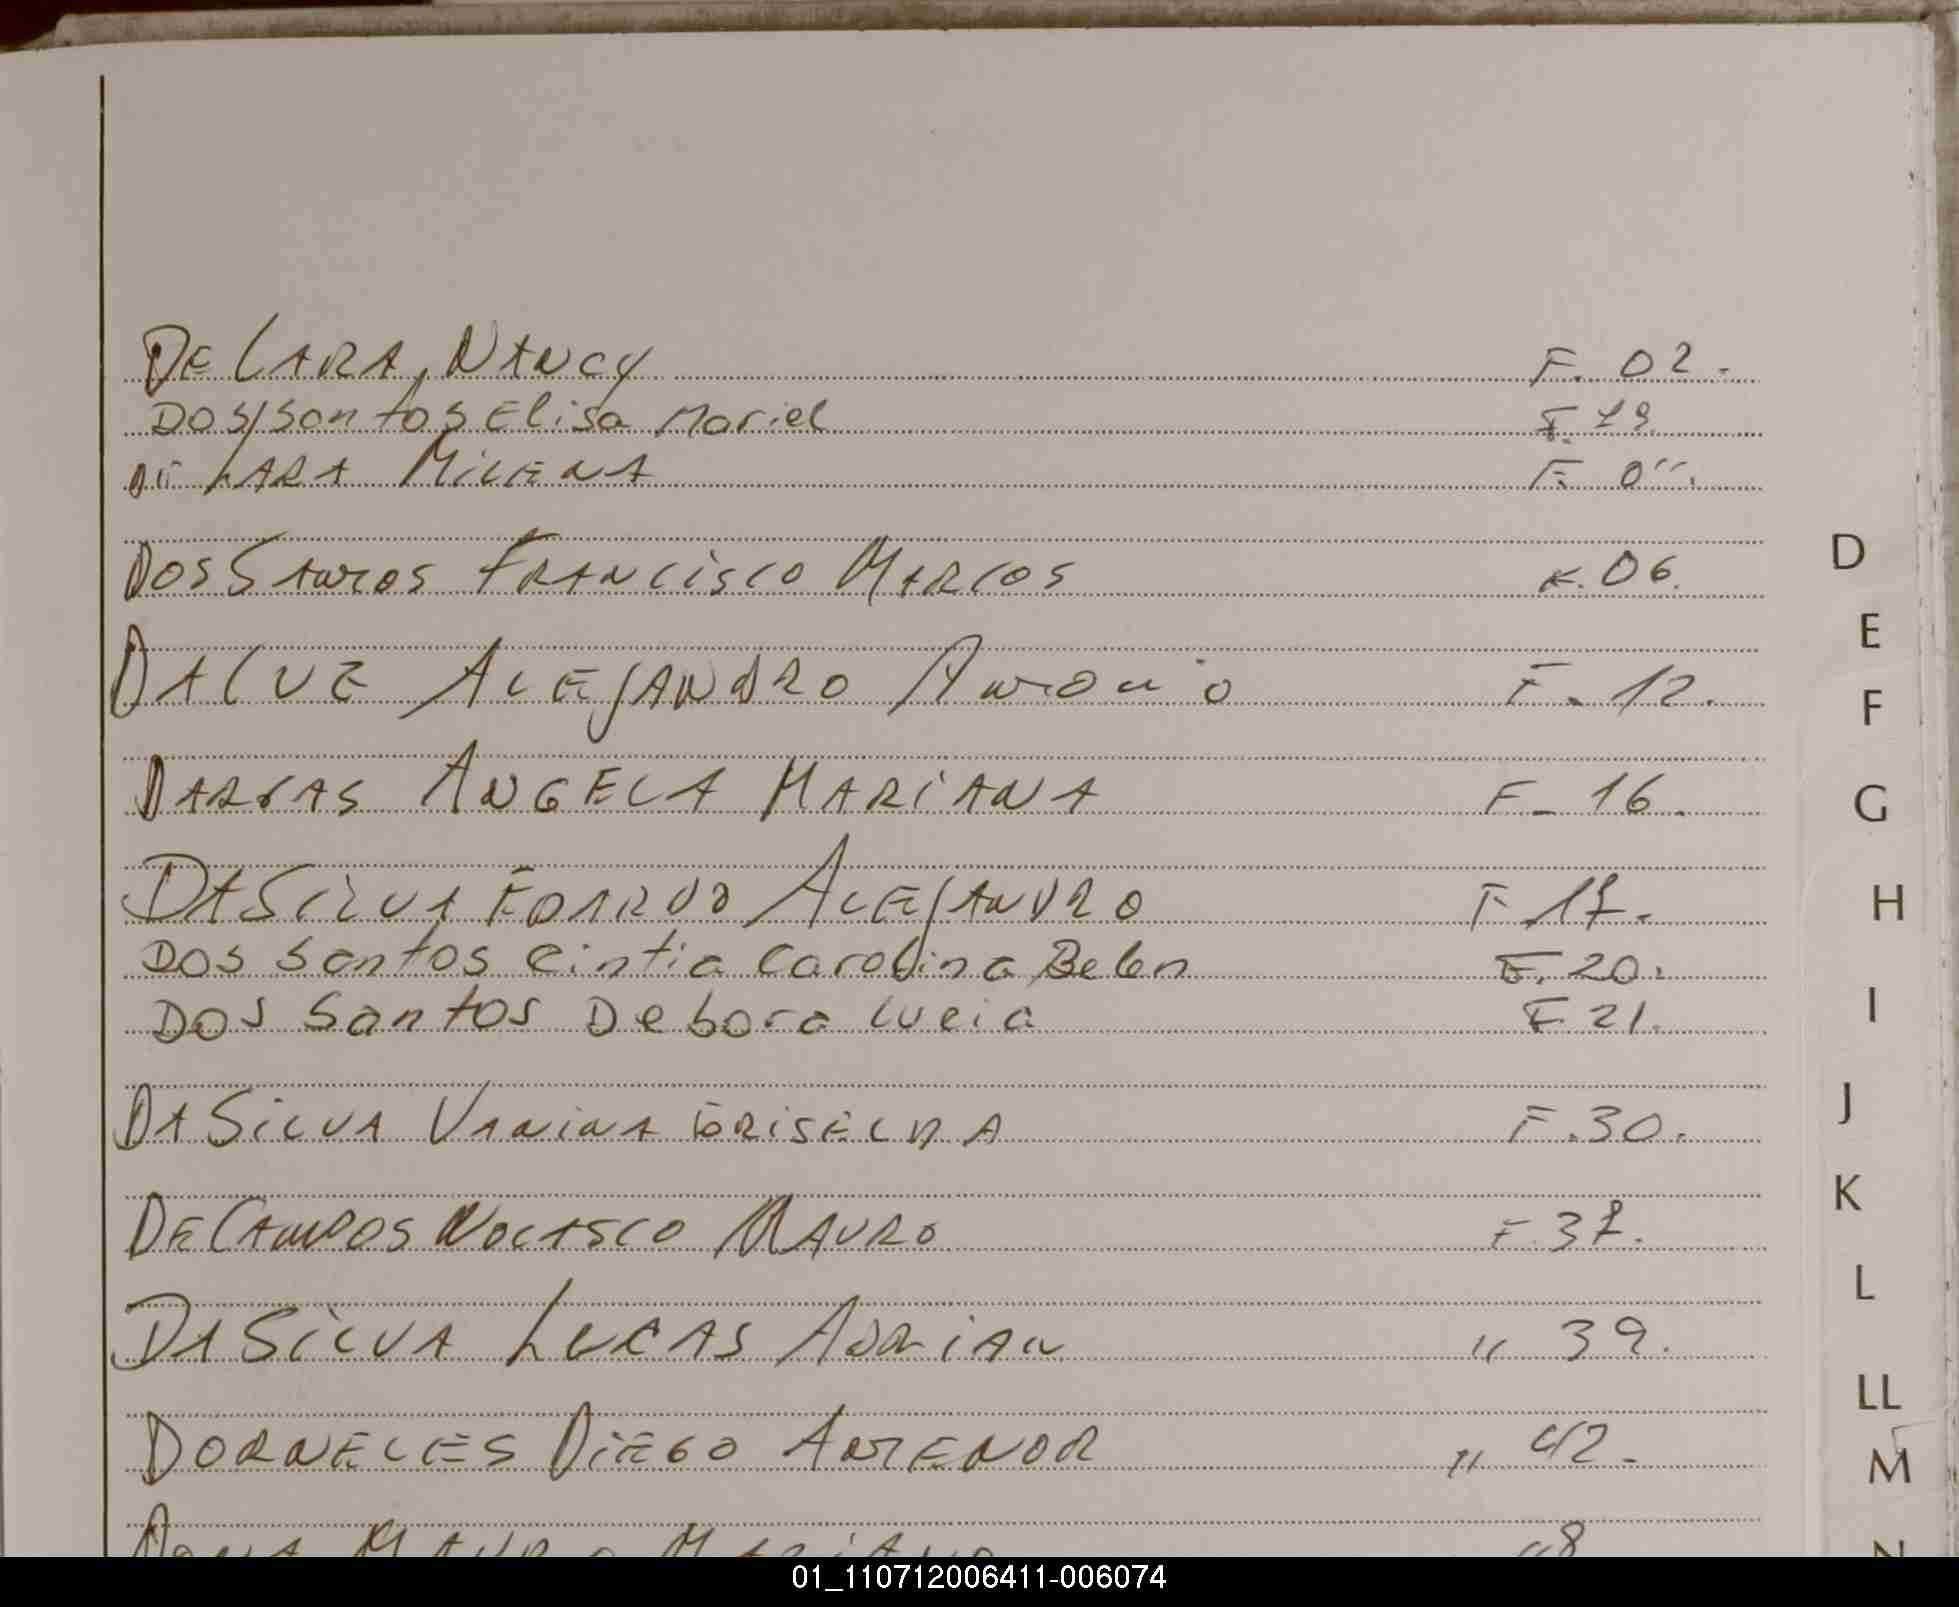 De Lara, Nancy F. 02.
Dos Santos Elisa Mariel F. 19.
De Lara Milena F. 04.
Dos Santos Francisco Marcos F. 06.
Daluz Alejandro Antonio F. 12.
Dargas Angela Mariana F. 16.
Da Silva Edardo Alejandro F. 17.
Dos Santos Cintia Carolina Belen F. 20.
Dos Santos Debora Lucia F. 21.
Da Silva Vanina Griselda F. 30.
De Campos Nolasco Mauro F. 37.
Da Silva Lucas Adrian " 39.
Dorneles Diego Antenor " 42.
Mauro Mariano 48
D
E
F
G
H
I
J
K
L
LL
M
N
01_110712006411-006074